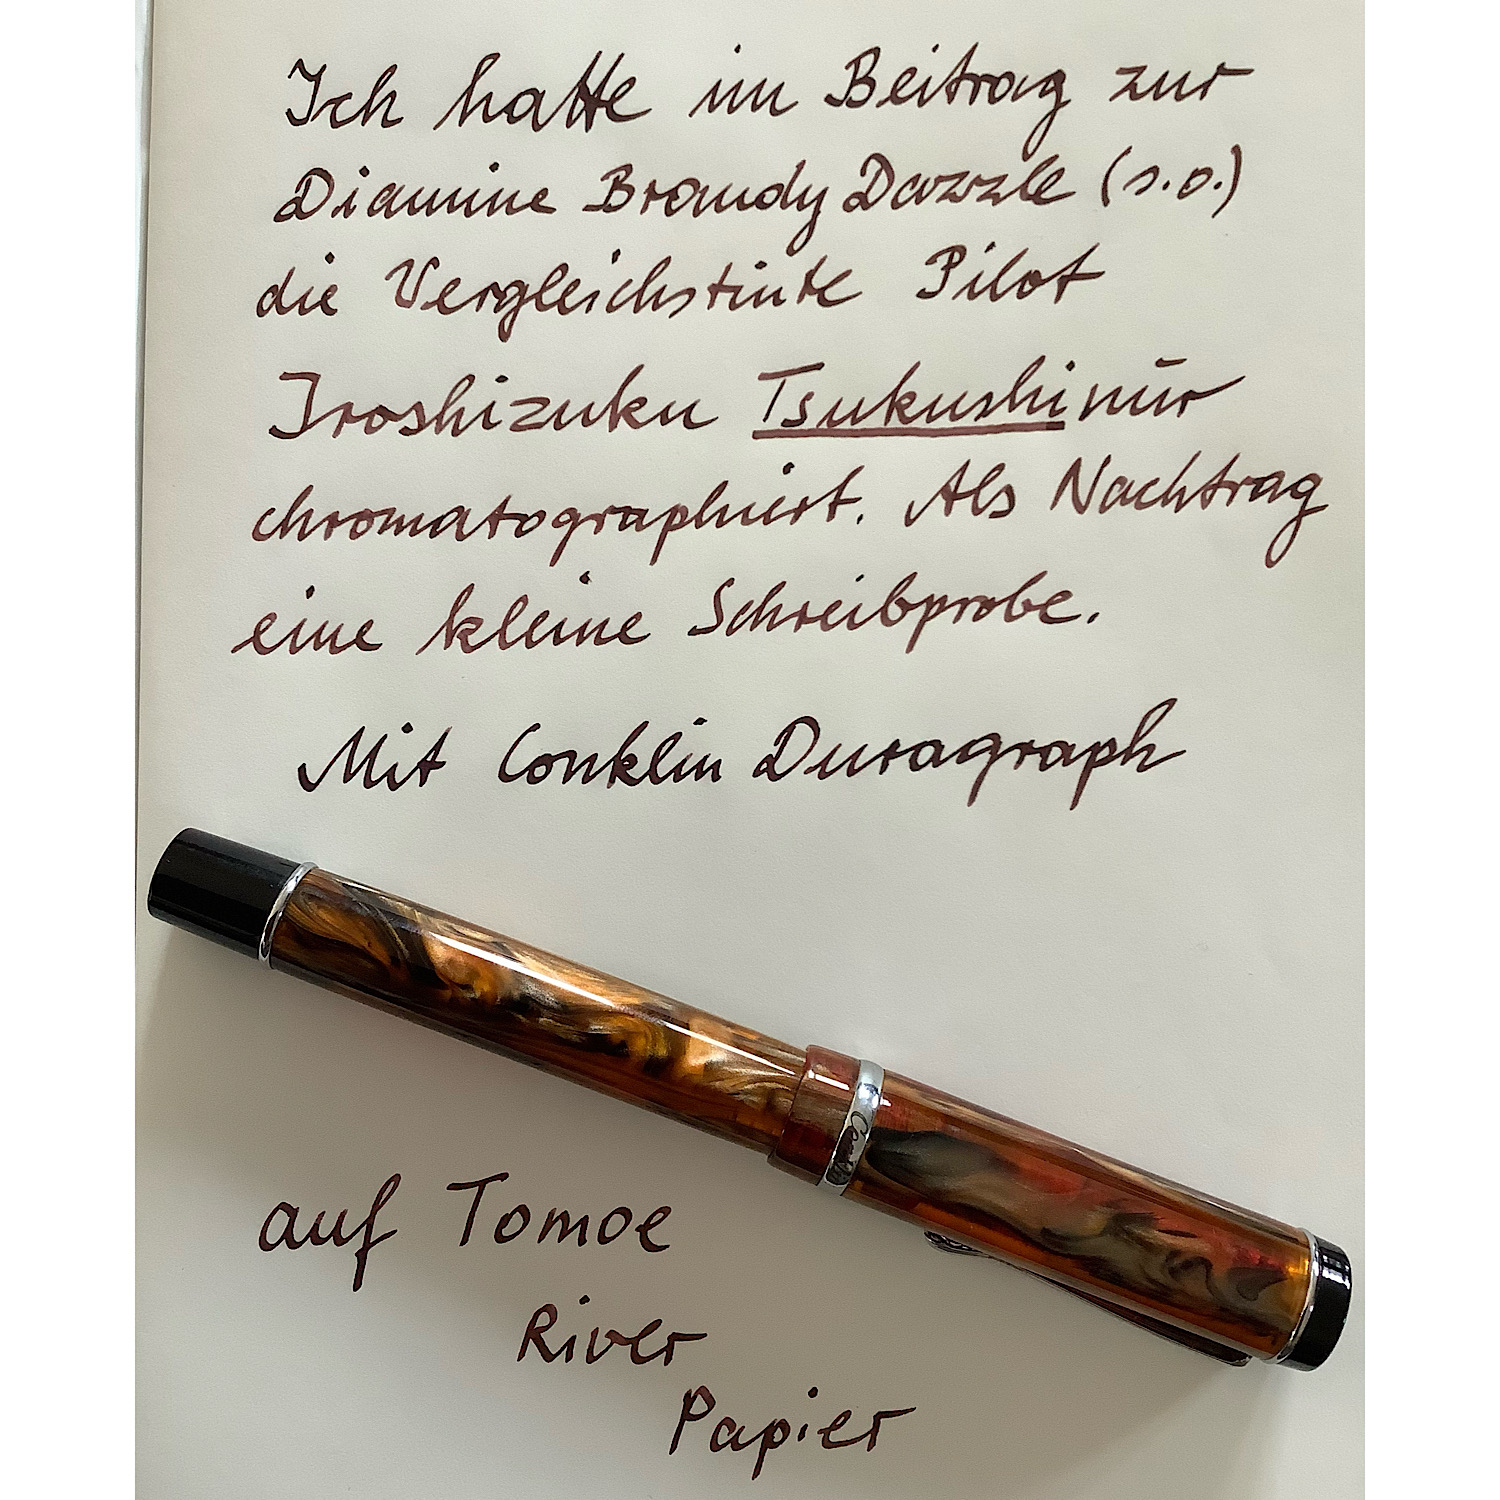 Ich hatte im Beitrag zur
Diamine Brandy Dazzle (s.o.)
die Vergleichstinte Pilot
Iroshizuku Tsukushi nur
chromatographiert. Als Nachtrag
eine kleine Schreibprobe.
Mit Conklin Duragraph
auf Tomoe
River
Papier